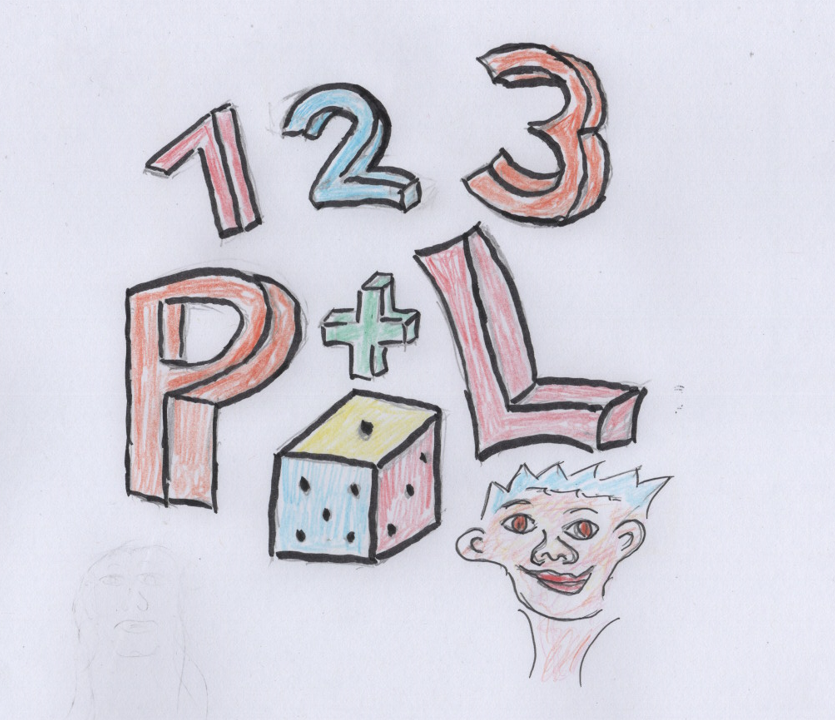 1 2 3
P + L